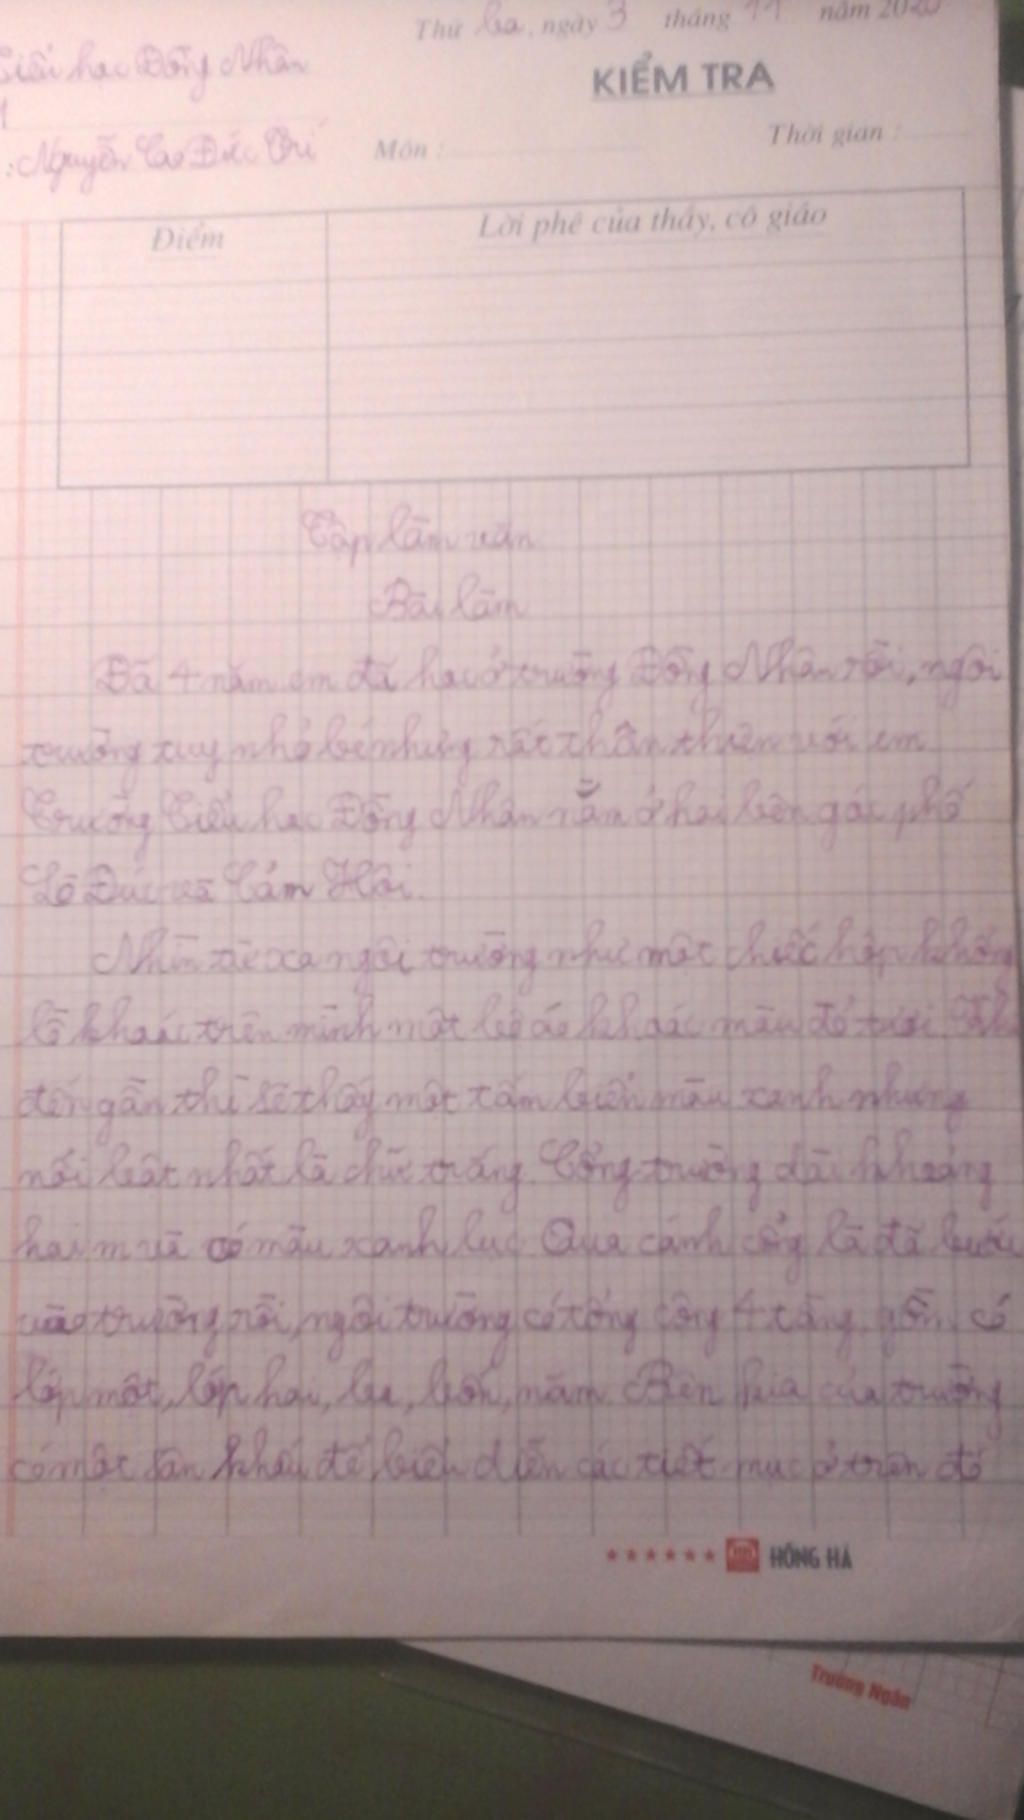 Thứ ba, ngày 3 tháng 11 năm 2020
Tiểu học Đồng Nhân
KIỂM TRA
: Nguyễn Cao Đức Trí
Môn :
Thời gian :
Điểm
Lời phê của thầy, cô giáo
Tập làm văn
Bài làm
Đã 4 năm em đã học ở trường Đồng Nhân rồi, ngôi
trường tuy nhỏ bé nhưng rất thân thiện với em
Trường Tiểu học Đồng Nhân nằm ở hai bên gác phố
Lò Đúc và Cảm Hội.
Nhìn từ xa ngôi trường như một chiếc hộp khổng
lồ khoác trên mình một bộ áo khoác màu đỏ tươi. Khi
đến gần thì sẽ thấy một tấm biển màu xanh nhưng
nổi bật nhất là chữ trắng. Cổng trường dài khoảng
hai m và có màu xanh lục. Qua cánh cổng là đã bước
vào trường rồi, ngôi trường có tổng cộng 4 tầng. gồm có
lớp một, lớp hai, ba, bốn, năm. Bên kia của trường
có một sân khấu để biểu diễn các tiết mục ở trên đó
HỒNG HÀ
Trường Ngân